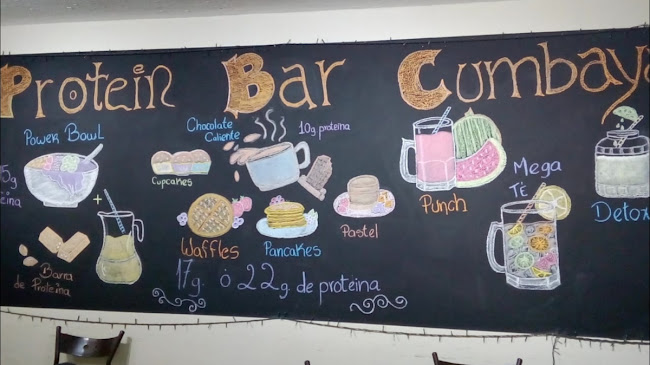 Protein Bar Cumbaya
Power Bowl
5g
Cupcakes
Chocolate
Caliente
10g proteina
Waffles
Pancakes
Pastel
Punch
Mega
Té
Detox
Barra
de Proteina
17g. ó 22g. de proteina